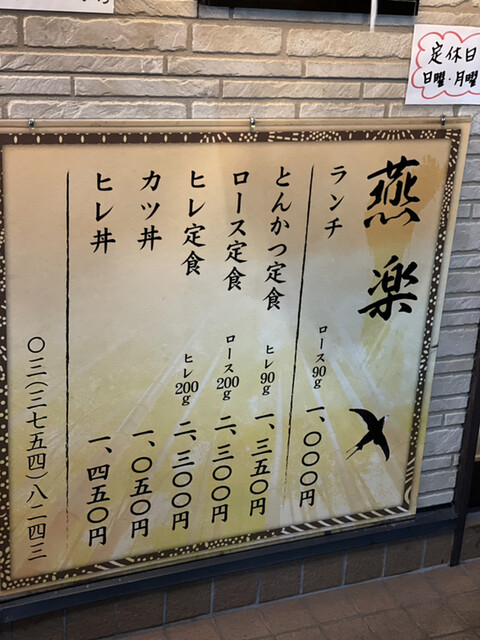 定休日
日曜・月曜
燕楽
ランチ ロース90g 一、〇〇〇円
とんかつ定食 ヒレ90g 一、三五〇円
ロース定食 ロース200g 二、三〇〇円
ヒレ定食 ヒレ200g 二、三〇〇円
カツ丼 一、〇五〇円
ヒレ丼 一、四五〇円
〇三(三七五四)八二四三